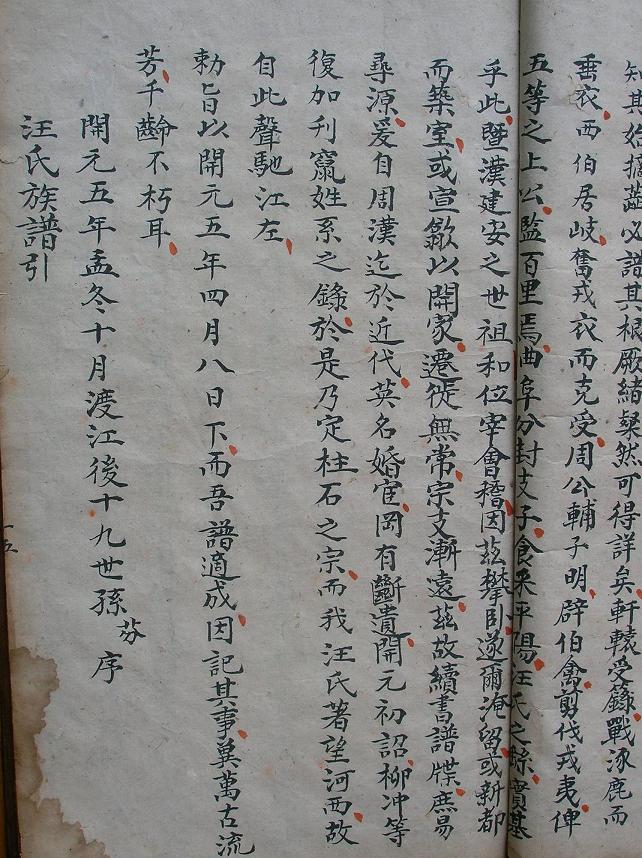 知其始擴蕝必譜其根厥緒粲然可得詳矣軒轅受籙戰涿鹿而
垂衣西伯居岐奮戎衣而克受周公輔子明辟伯禽剪伐戎夷俾
五等之上公監百里焉曲阜分封支子食采平陽汪氏之繇實基
乎此暨漢建安之世祖和位宰會稽因玆攀臥遂爾淹留或新都
而築室或宣歙以開家遷徙無常宗支漸遠玆故續書譜牒庶易
尋源爰自周漢迄於近代英名婚宦罔有斷遺開元初詔柳冲等
復加刋竄姓系之錄於是乃定柱石之宗而我汪氏著望河西故
自此聲馳江左
勑旨以開元五年四月八日下而吾譜適成因記其事冀萬古流
芳千齡不朽耳
開元五年孟冬十月渡江後十九世孫芬序
汪氏族譜引
十五